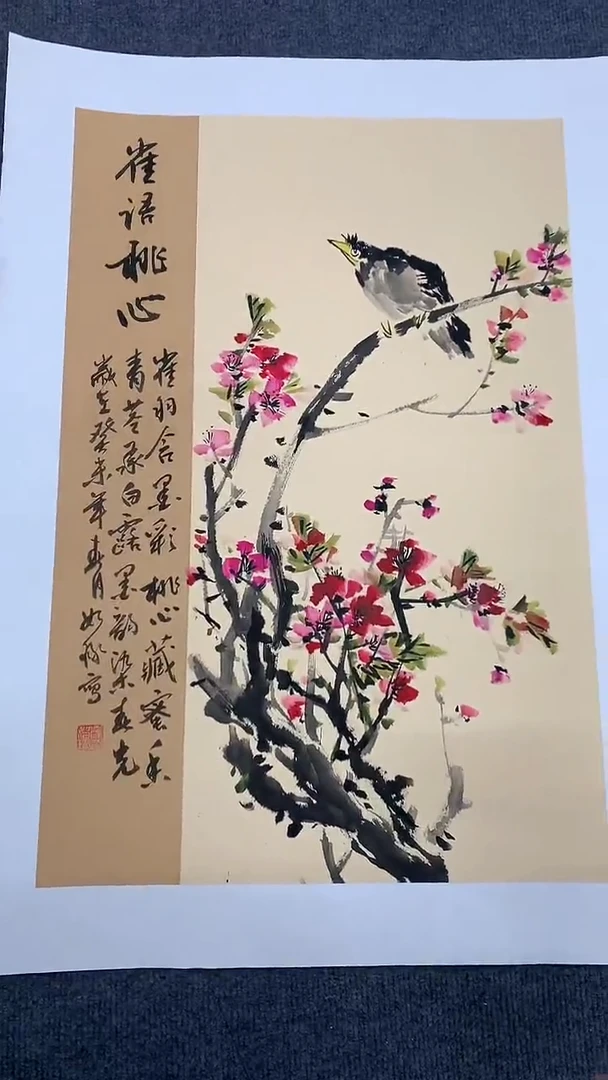 雀语桃心
雀羽含墨彩桃心藏蜜香
青苔承白露墨韵染春光
歲在癸未年春月如寫